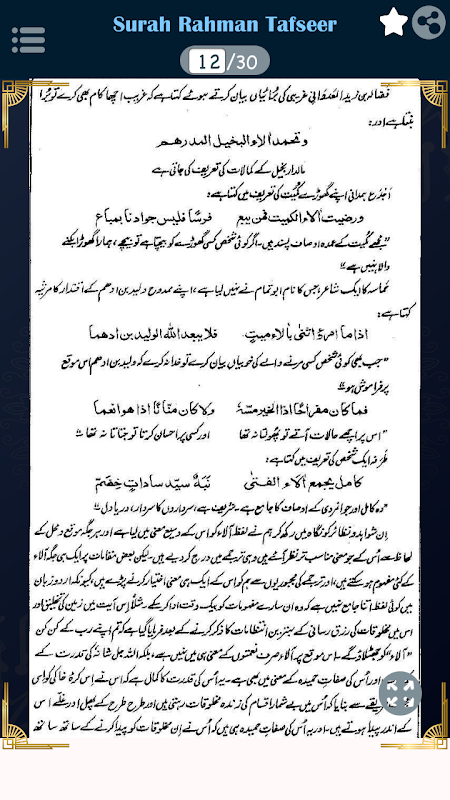 Surah Rahman Tafseer
12/30
فضالہ بن زید العدوانی غریبی کی برائیاں بیان کرتے ہوئے کہتا ہے کہ غریب اچھا کام بھی کرے تو برا
بنتا ہے اور:
وتحمد آلاء البخیل المدرھم
مالدار بخیل کے کمالات کی تعریف کی جاتی ہے
اجدع ہمدانی اپنے گھوڑے کمیت کی تعریف میں کہتا ہے:
ورضیت آلاء الکمیت فمن یبع فرسًا فلیس جوادنا بمباع
"مجھے کمیت کے عمدہ اوصاف پسند ہیں۔ اگر کوئی شخص کسی گھوڑے کو بیچتا ہے تو بیچے، ہمارا گھوڑا بکنے
والا نہیں ہے"
حماسہ کا ایک شاعر، جس کا نام ابو تمام نے نہیں لیا ہے، اپنے ممدوح ولید بن ادھم کے اقتدار کا مرثیہ
کہتا ہے:
اذا ما امرؤ اثنٰی بآلاء میتٍ فلا یبعد اللہ الولید بن ادھما
"جب بھی کوئی شخص کسی مرنے والے کی خوبیاں بیان کرے تو خدا نہ کرے کہ ولید بن ادھم اس موقع
پر فراموش ہو"
فما کان مفراحًا اذا الخیر مسّہ ولا کان منّانًا اذا ھو انعما
"اس پر اچھے حالات آتے تو پھولتا نہ تھا اور کسی پر احسان کرتا تو جتاتا نہ تھا"
طرفہ ایک شخص کی تعریف میں کہتا ہے:
کامل یجمع آلاء الفتٰی نَبَہٌ سیّد ساداتٍ خِضَمّ
"وہ کامل اور جوانمردی کے اوصاف کا جامع ہے۔ شریف ہے، سرداروں کا سردار، دریا دل"
ان شواہد و نظائر کو نگاہ میں رکھ کر ہم نے لفظ آلاء کو اس کے وسیع معنی میں لیا ہے اور ہر جگہ موقع و محل کے
لحاظ سے اس کے جو معنی مناسب تر نظر آئے ہیں وہی ترجمے میں درج کر دیے ہیں۔ لیکن بعض مقامات پر ایک ہی جگہ آلاء
کے کئی مفہوم ہو سکتے ہیں، اور ترجمے کی مجبوریوں سے ہم کو اس کے ایک ہی معنی اختیار کرنے پڑے ہیں، کیونکہ اردو زبان
میں کوئی لفظ اتنا جامع نہیں ہے کہ وہ ان سارے مفہومات کو بیک وقت ادا کر سکے۔ مثلاً اس آیت میں زمین کی تخلیق اور
اس میں مخلوقات کی رزق رسانی کے بہترین انتظامات کا ذکر کرنے کے بعد فرمایا گیا ہے کہ تم اپنے رب کے کن کن
"آلاء" کو جھٹلاؤ گے۔ اس موقع پر آلاء صرف نعمتوں کے معنی ہی میں نہیں ہے، بلکہ اللہ جل شانہ کی قدرت کے
اور اس کی صفات حمیدہ کے معنی میں بھی ہے۔ یہ اُس کی قدرت کا کمال ہے کہ اس نے اِس کرۂ خاکی کو اس
طریقے سے بنایا کہ اس میں بے شمار اقسام کی زندہ مخلوقات رہتی ہیں اور طرح طرح کے پھل اور غلے اس
کے اندر پیدا ہوتے ہیں۔ اور یہ اُس کی صفات حمیدہ ہی ہیں کہ اُس نے اِن مخلوقات کو پیدا کرنے کے ساتھ ساتھ